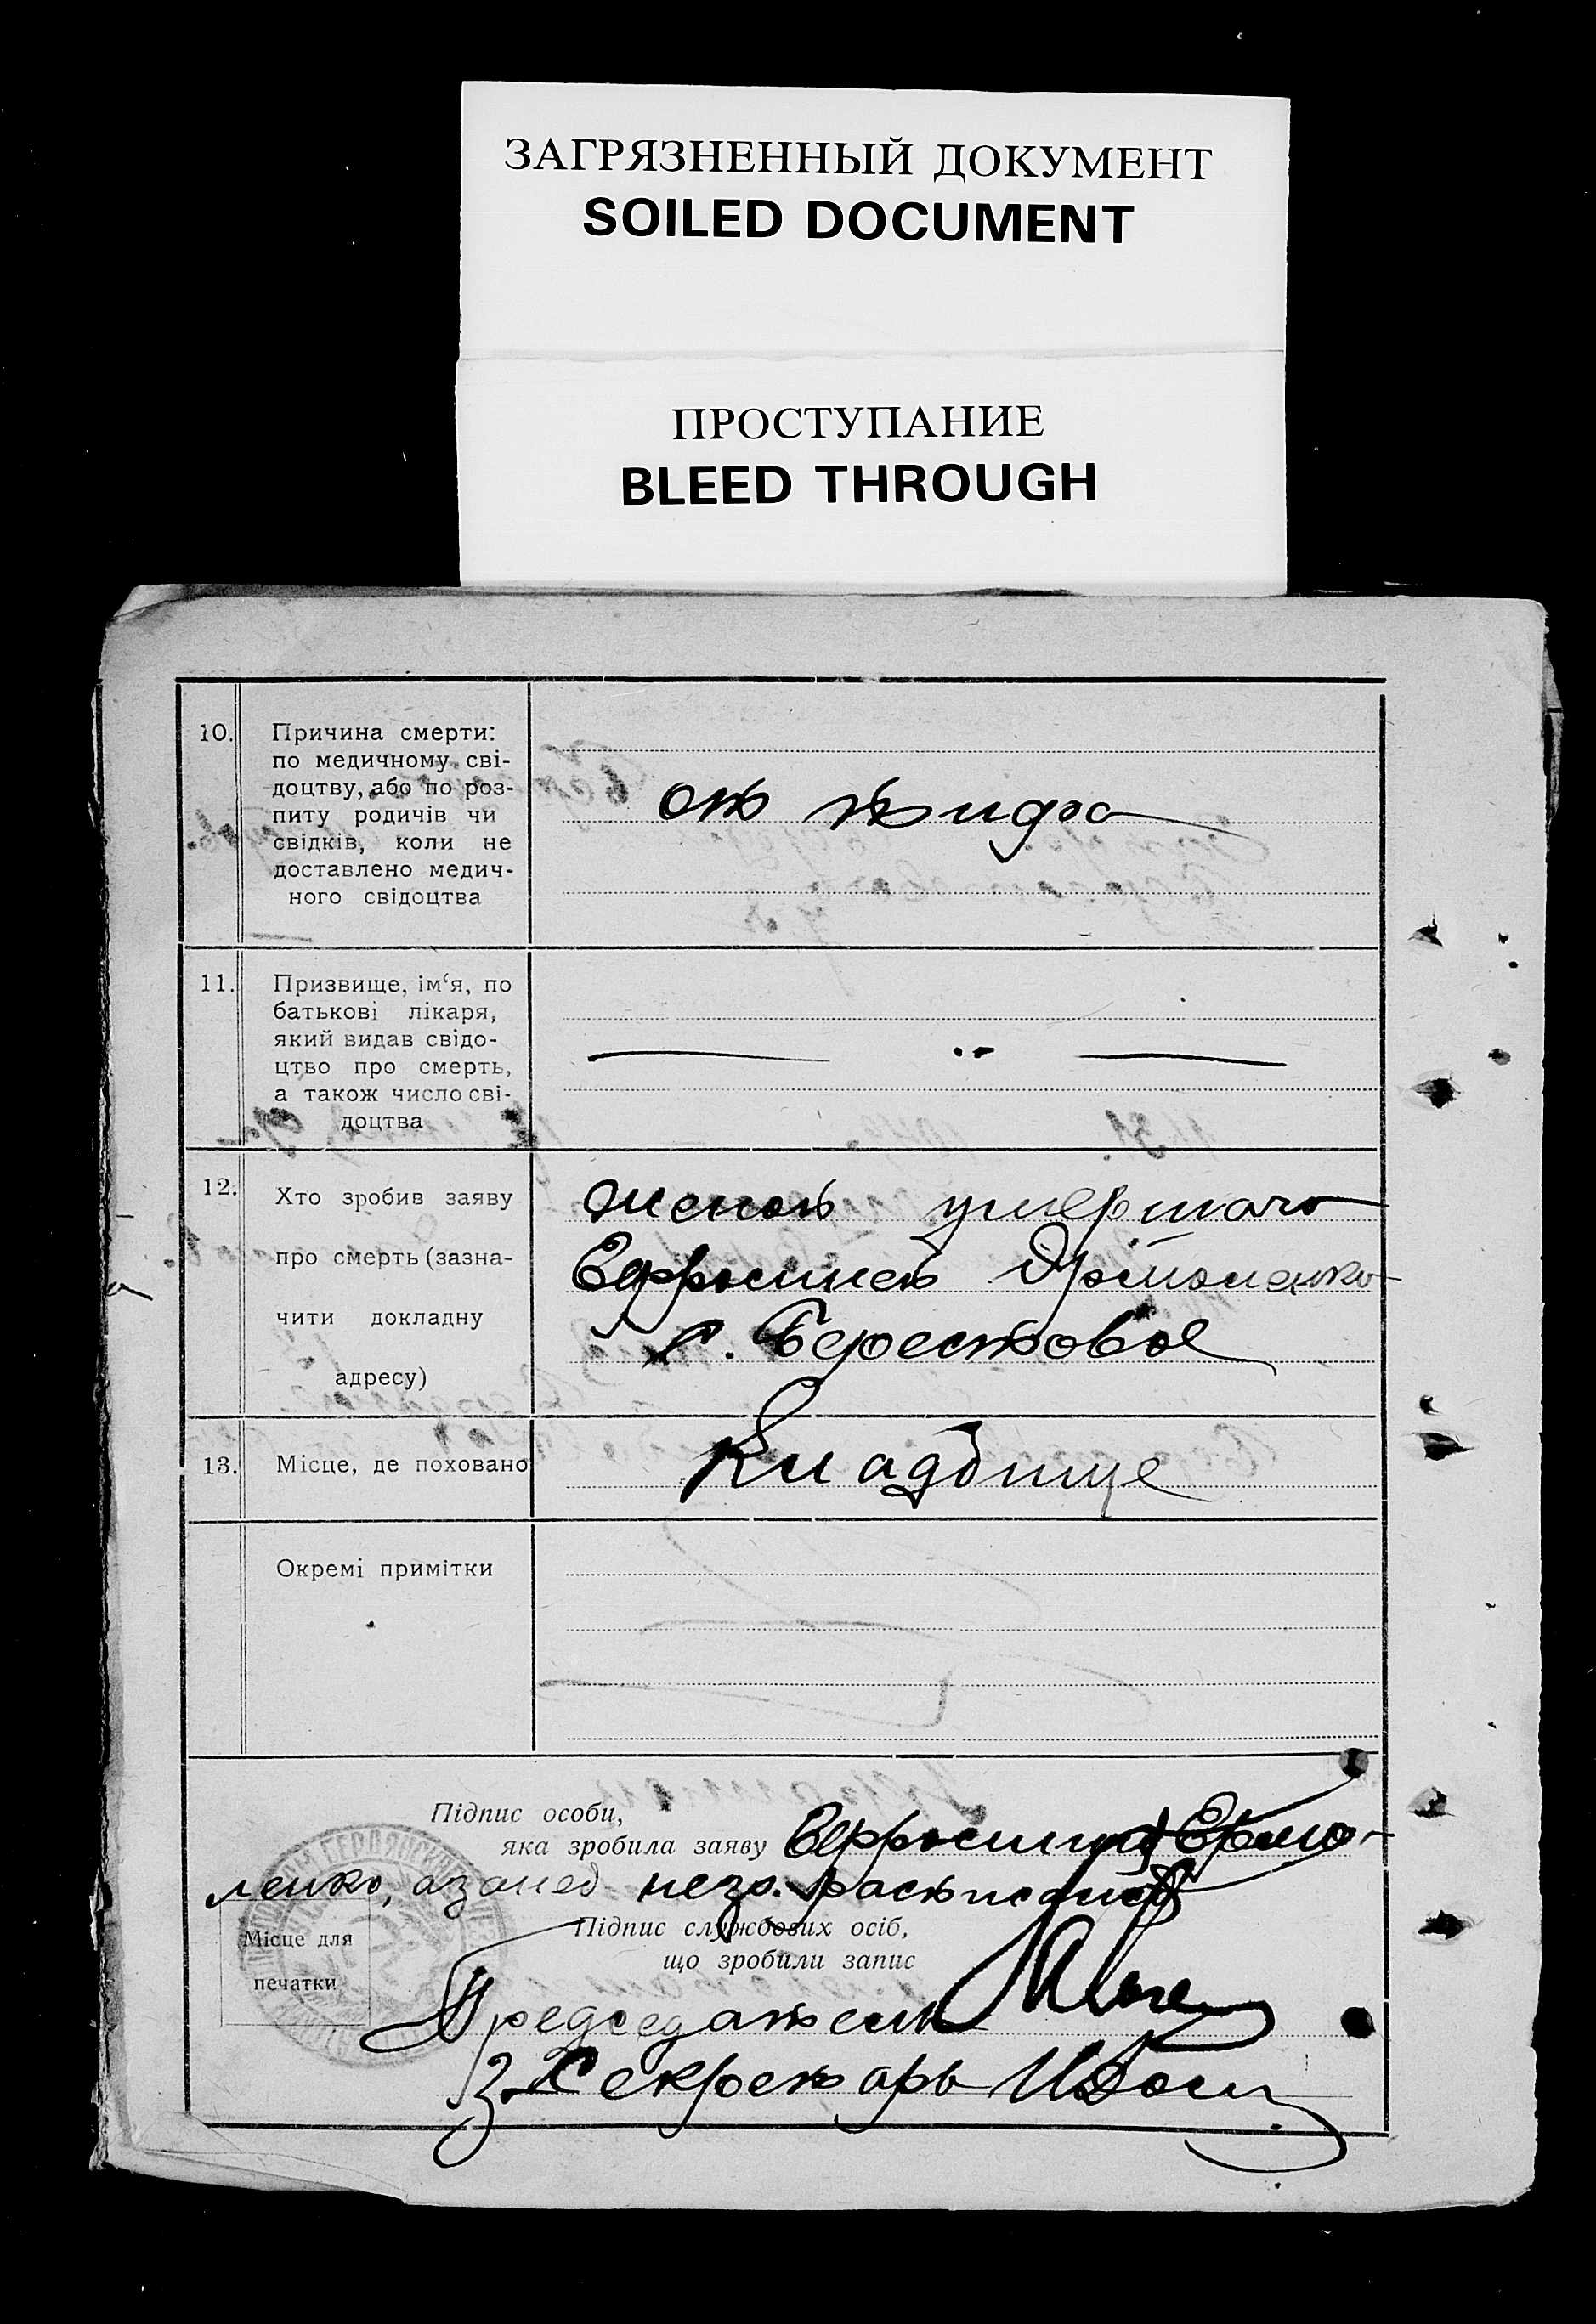 ЗАГРЯЗНЕННЫЙ ДОКУМЕНТ
SOILED DOCUMENT
ПРОСТУПАНИЕ
BLEED THROUGH
10. Причина смерти:
по медичному сві-
доцтву, або по роз-
питу родичів чи
свідків, коли не
доставлено медич-
ного свідоцтва
от тифа
11. Призвище, ім‘я, по
батькові лікаря,
який видав свідо-
цтво про смерть,
а також число сві-
доцтва
12. Хто зробив заяву
про смерть (зазна-
чити докладну
адресу)
женой умершаго
Ефросиней
с. Берестовое
13. Місце, де поховано
Кладбище
Окремі примітки
Підпис особи,
яка зробила заяву Ефросиния Ермо-
ленко, а за нея негр. расписался
Підпис службових осіб,
що зробили запис
Місце для
печатки
Председатель
Секретарь